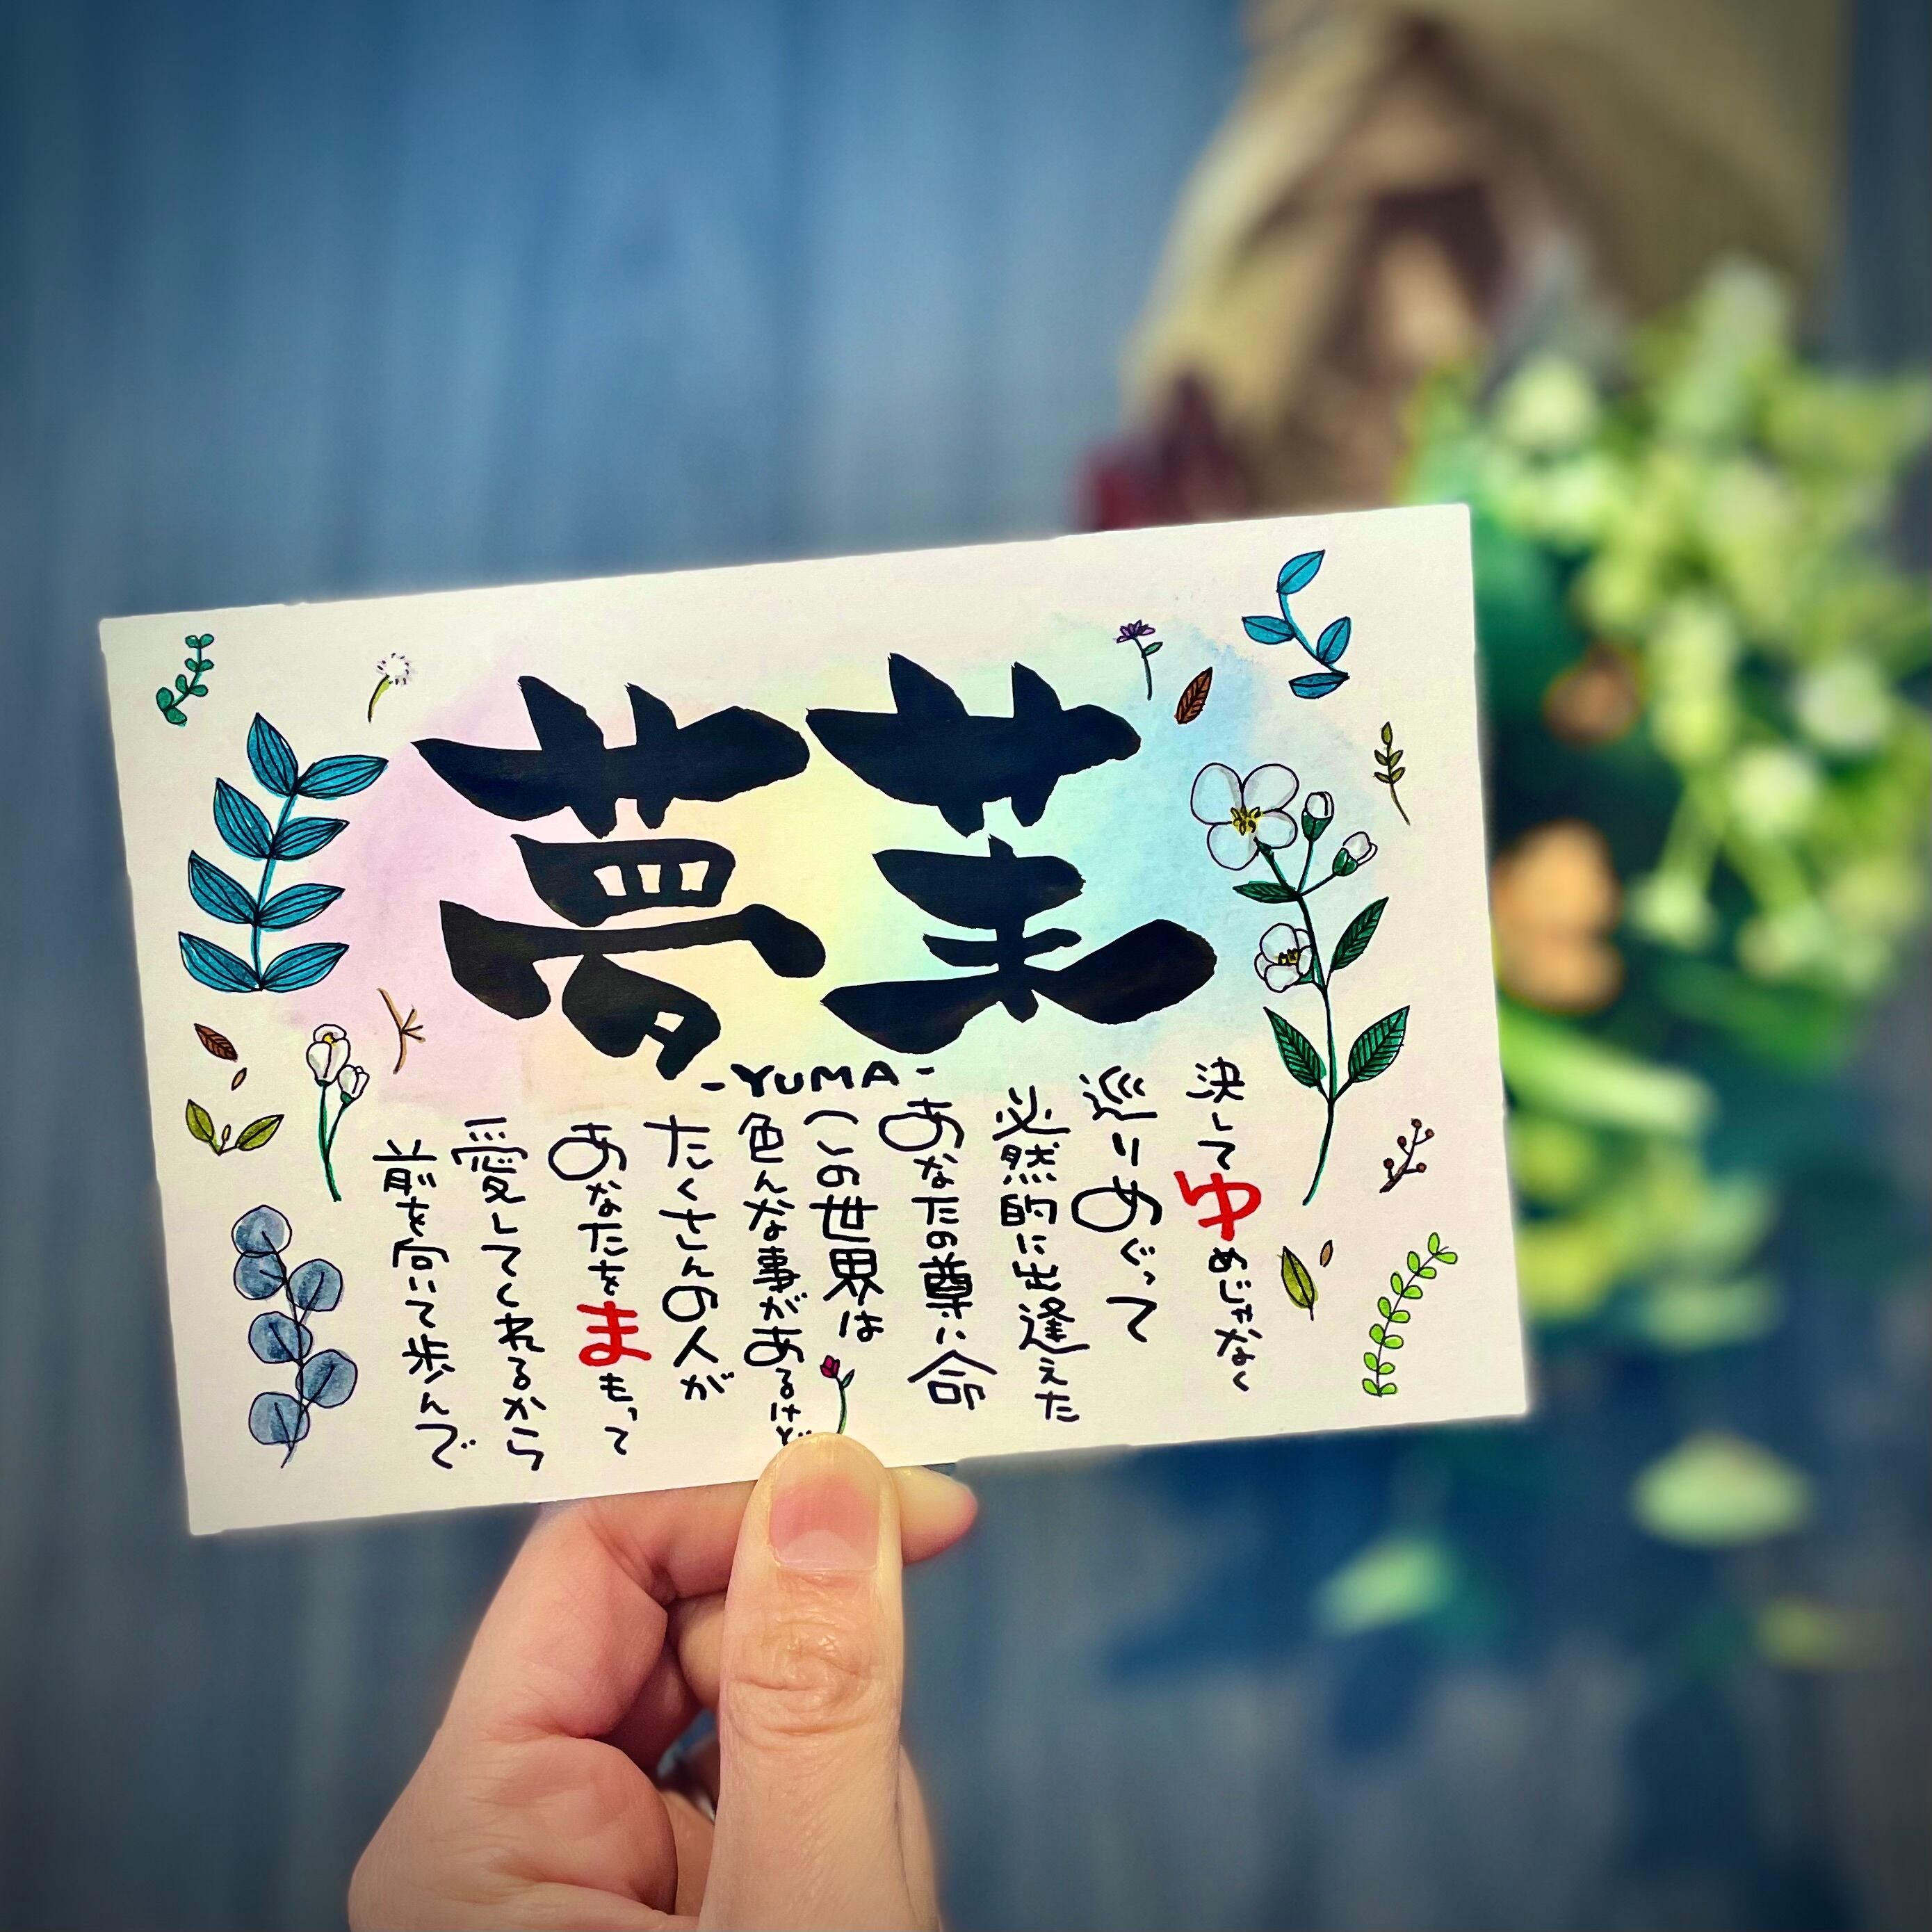 夢茉
-YUMA-
決してゆめじゃなく
巡りめぐって
必然的に出逢えた
あなたの尊い命
この世界は
色んな事があるけど
たくさんの人が
あなたをまもって
愛してくれるから
前を向いて歩んで